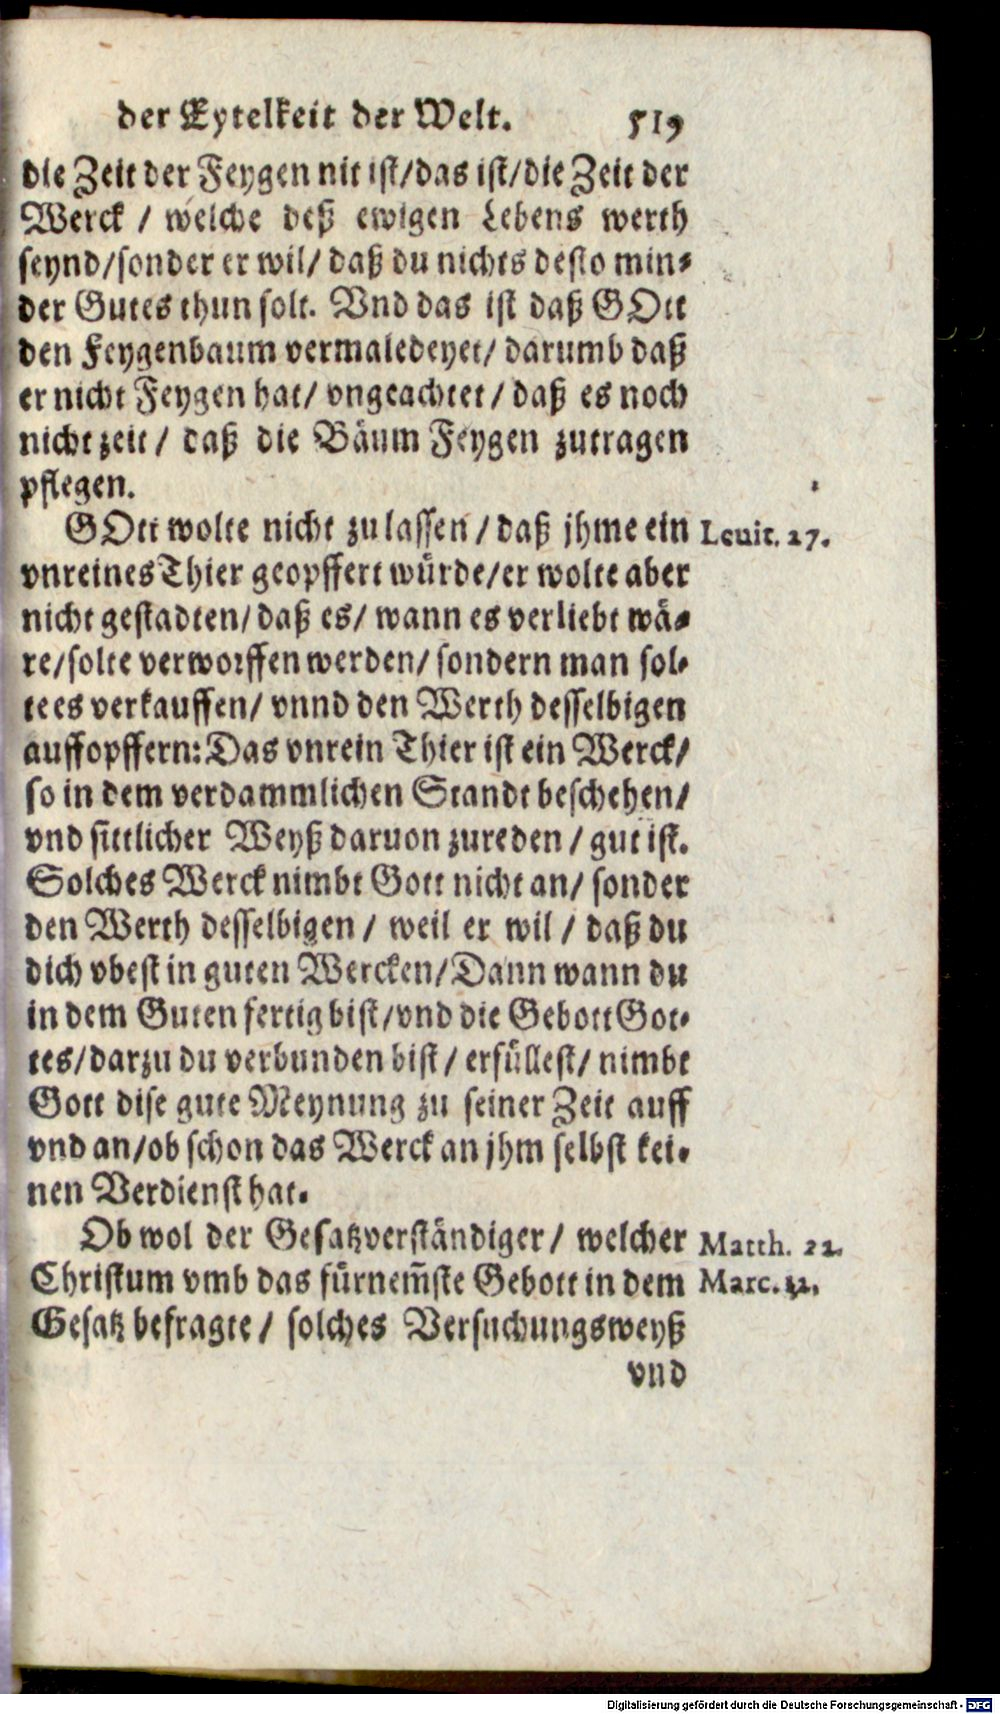 der Eytelkeit der Welt. 519
die Zeit der Feygen nit ist/das ist/die Zeit der
Werck / welche deß ewigen Lebens werth
seynd/sonder er wil/ daß du nichts desto min-
der Gutes thun solt. Vnd das ist daß GOtt
den Feygenbaum vermaledeyet/ darumb daß
er nicht Feygen hat/ vngeachtet / daß es noch
nicht zeit / daß die Bäum Feygen zutragen
pflegen.
GOtt wolte nicht zulassen / daß jhme ein Leuit. 27.
vnreines Thier geopffert würde/er wolte aber
nicht gestadten/ daß es/ wann es verliebt wä-
re/solte verworffen werden/ sondern man sol-
te es verkauffen/ vnnd den Werth desselbigen
auffopffern: Das vnrein Thier ist ein Werck/
so in dem verdammlichen Standt beschehen/
vnd sittlicher Weyß daruon zureden / gut ist.
Solches Werck nimbt Gott nicht an/ sonder
den Werth desselbigen / weil er wil / daß du
dich vbest in guten Wercken/ Dann wann du
in dem Guten fertig bist/vnd die Gebott Got-
tes/darzu du verbunden bist/ erfüllest/ nimbt
Gott dise gute Meynung zu seiner Zeit auff
vnd an/ob schon das Werck an jhm selbst kei-
nen Verdienst hat.
Ob wol der Gesatzverständiger / welcher Matth. 22.
Christum vmb das fürnem̃ste Gebott in dem Marc. 12.
Gesatz befragte / solches Versuchungsweyß
vnd
Digitalisierung gefördert durch die Deutsche Forschungsgemeinschaft - DFG